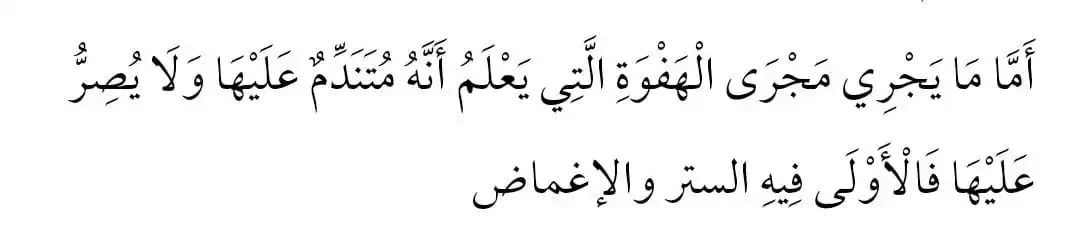 أَمَّا مَا يَجْرِي مَجْرَى الْهَفْوَةِ الَّتِي يَعْلَمُ أَنَّهُ مُتَنَدِّمٌ عَلَيْهَا وَلَا يُصِرُّ
عَلَيْهَا فَالْأَوْلَى فِيهِ الستر والإغماض